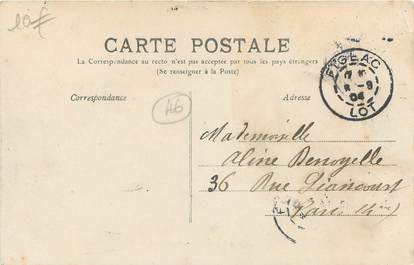 10f
CARTE POSTALE
La Correspondance au recto n'est pas acceptée par tous les pays étrangers
(Se renseigner à la Poste)
FIGEAC
LOT
04
Correspondance
Adresse
46
Mademoiselle
Aline Denoyelle
36 Rue Liancourt
Paris